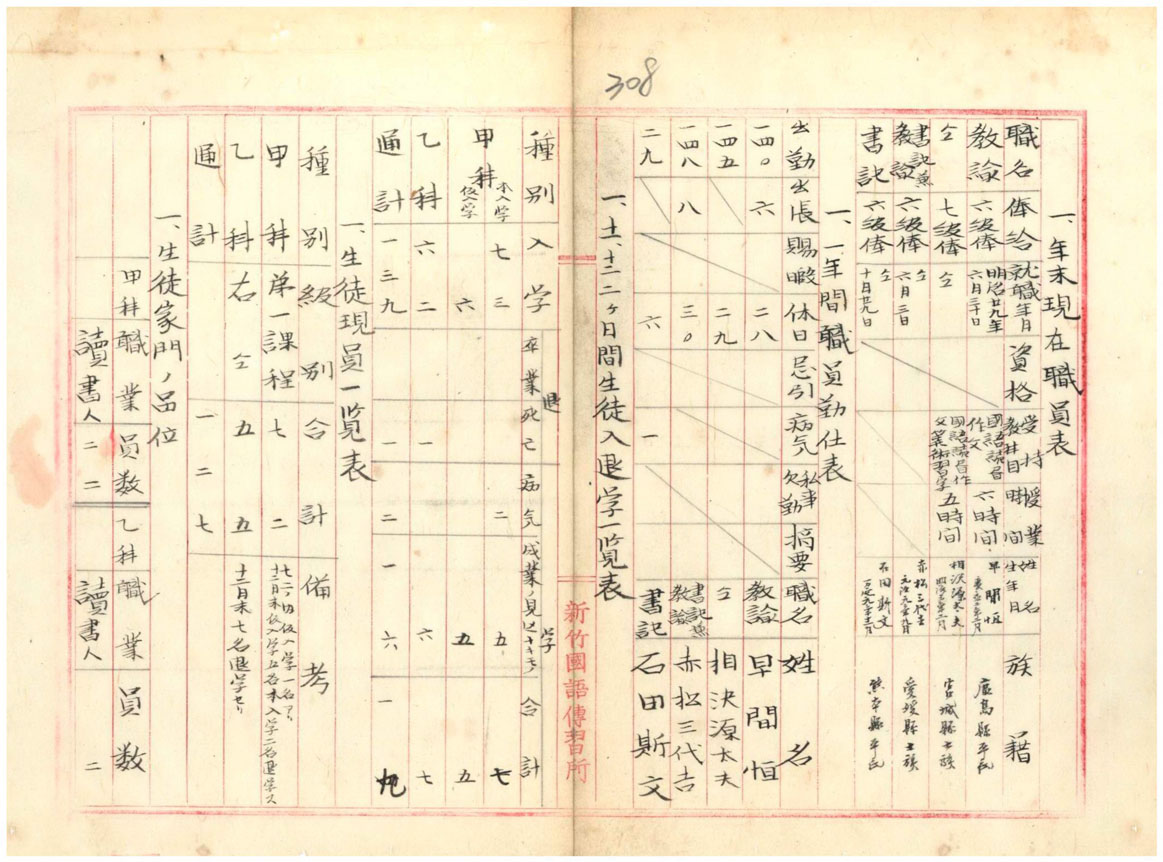 308
一、年末現在職員表
職名 俸給 就職年月 資格 受持教科目 授業時間 姓名生年月 族籍
教諭 六級俸 明治廿九年六月三十日 國語讀書作文 六時間 早間恒 廣島縣平民
仝 七級俸 仝 國語讀書作文算術習字 五時間 相沢源太夫 宮城縣士族
書記兼教諭 六級俸 仝六月三日 赤松三代吉 愛媛縣士族
書記 六級俸 仝十月廿九日 石田斯文 熊本縣平民
一、一年間職員勤仕表
出勤 出張 賜暇 休日 忌引 病気 私事欠勤 摘要 職名 姓名
一四〇 六 二八 教諭 早間恒
一四五 二九 仝 相沢源太夫
一四八 八 三〇 一 書記兼教諭 赤松三代吉
二九 六 書記 石田斯文
一、十一、十二二ヶ月間生徒入退学一覧表
新竹國語傳習所
種別 入学 卒業 死亡 病気 成業ノ見込ナキモノ 合計
退 学
甲科 本入学 七三 二 五 七
仮入学 六 五 五
乙科 六二 一 六 七
通計 一三九 一 二 一六 一九
一、生徒現員一覧表
種別 級別 合計 備考
甲科 第一課程 七二 十二月末仮入学五名本入学二名退学ス
乙科 右仝 五五 十二月末七名退学セリ
通計 一二七
一、生徒家門ノ品位
甲科 職業 員数 乙科 職業 員数
讀書人 二二 讀書人 二